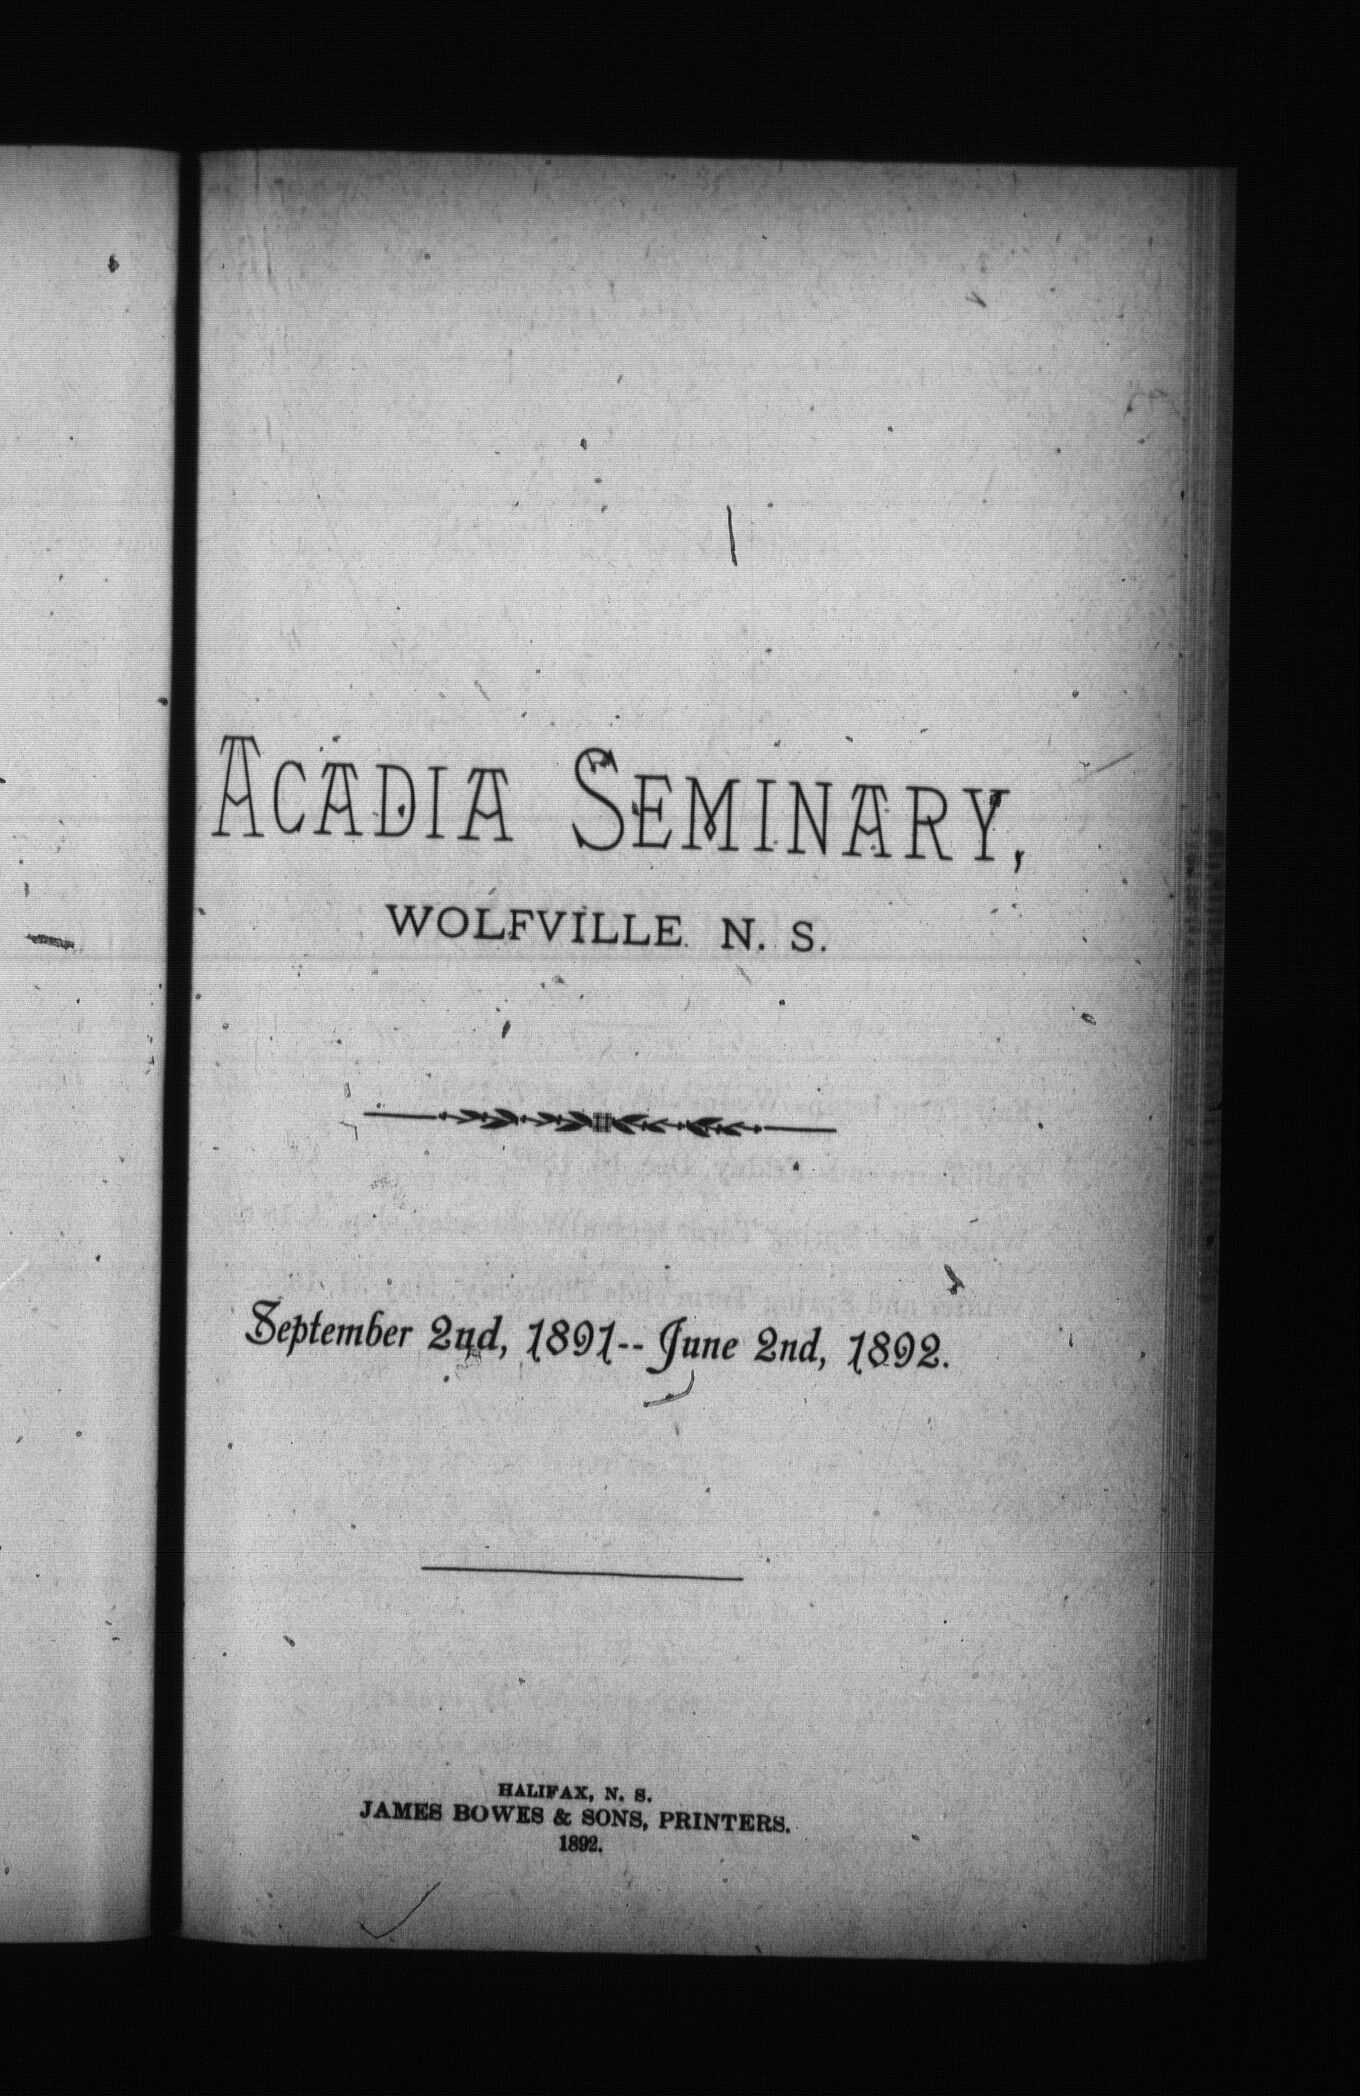 ACADIA SEMINARY,
WOLFVILLE N. S.
September 2nd, 1891--June 2nd, 1892.
HALIFAX, N. S.
JAMES BOWES & SONS, PRINTERS.
1892.